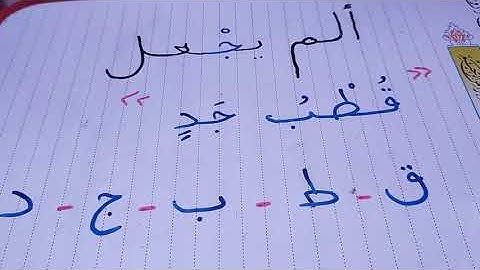 ألم يجْعل
« قُطْبُ جَدٍ »
ق - ط - ب - ج - د